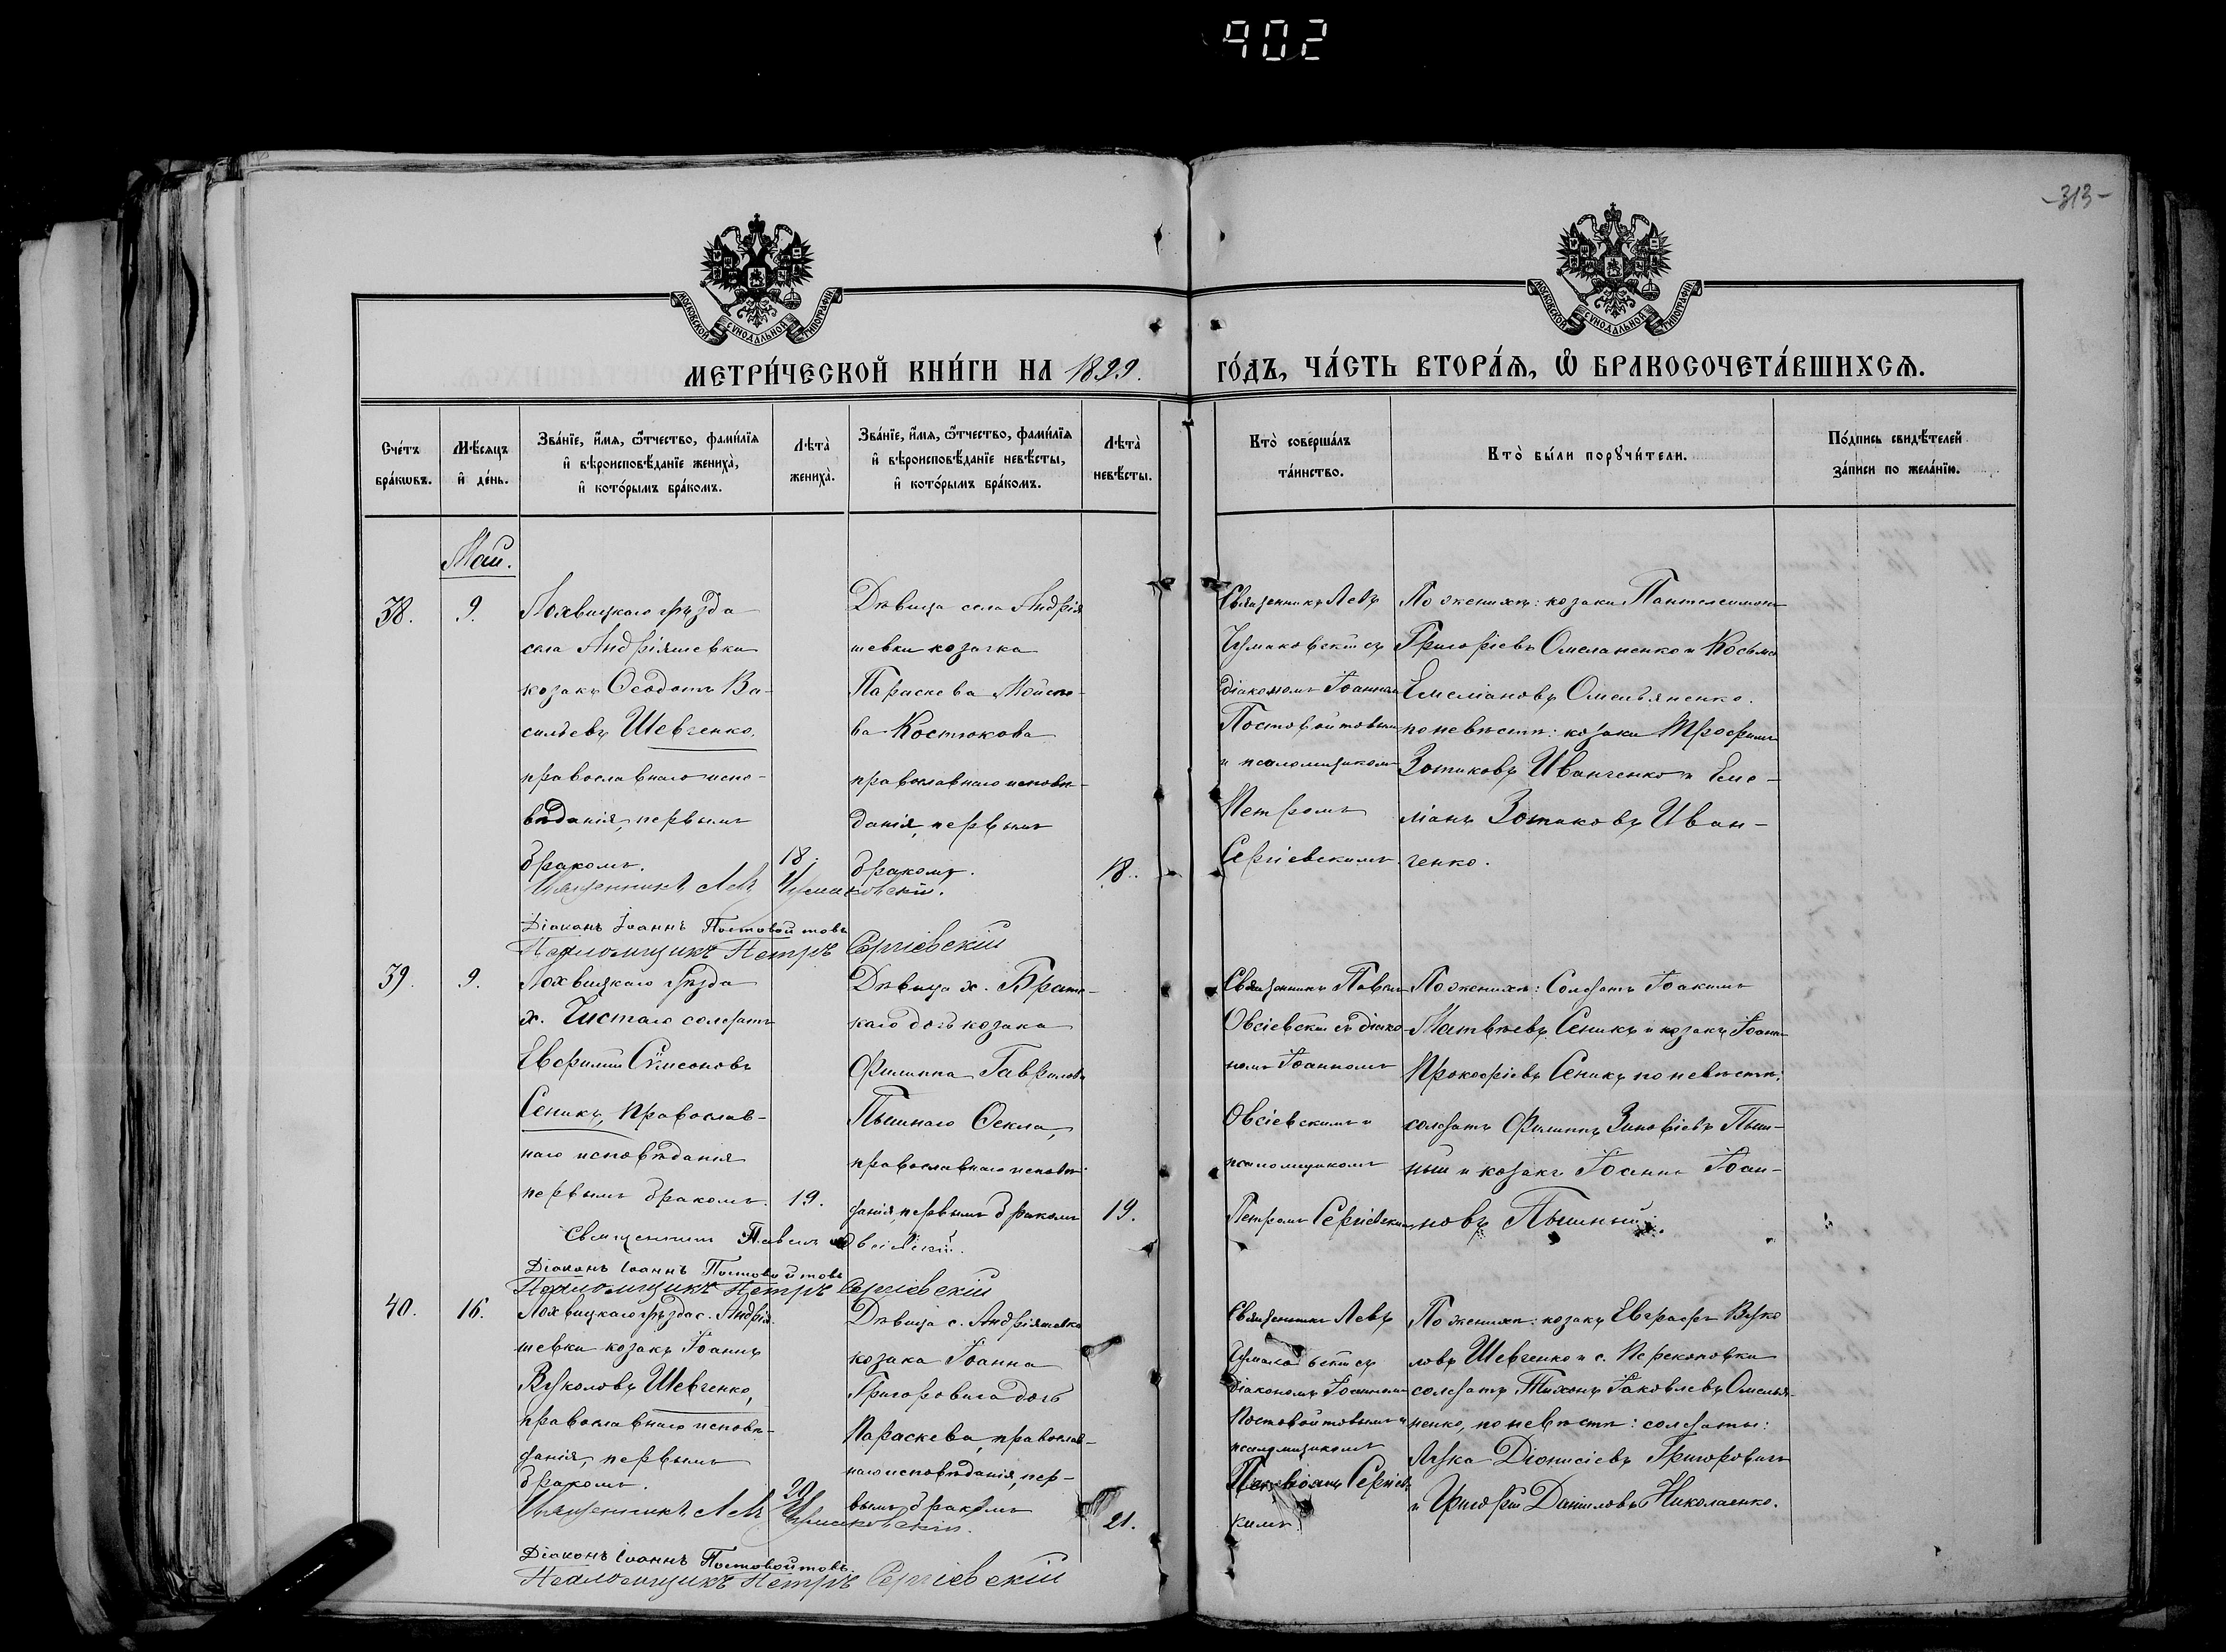 902
-313-
МОСКОВСКОЙ СѴНОДАЛЬНОЙ ТИПОГРАФІИ
МОСКОВСКОЙ СѴНОДАЛЬНОЙ ТИПОГРАФІИ
МЕТРИ́ЧЕСКОЙ КНИ́ГИ НА 1899. ГО́ДЪ, ЧА́СТЬ ВТОРА́Ѧ, Ѡ҆ БРАКОСОЧЕТА́ВШИХСѦ.
Сче́тъ
бра́кѡвъ.
Мѣ́сѧцъ
и҆ де́нь.
Зва́нїе, и҆́мѧ, ѻ҆́тчество, фамі́лїѧ
и҆ вѣроисповѣ́данїе жениха̀,
и҆ кото́рымъ бра́комъ.
Лѣта̀
жениха̀.
Зва́нїе, и҆́мѧ, ѻ҆́тчество, фамі́лїѧ
и҆ вѣроисповѣ́данїе невѣ́сты,
и҆ кото́рымъ бра́комъ.
Лѣта̀
невѣ́сты.
Кто̀ соверша́лъ
та́инство.
Кто̀ бы́ли порꙋчи́тели.
По́дпись свидѣ́телей
за́писи по жела́нїю.
Май.
38.
9.
Лохвицкаго уѣзда
села Андріяшевки
козакъ Ѳеодотъ Ва-
сильевъ Шевченко,
православнаго испо-
вѣданія, первымъ
бракомъ.
18.
Дѣвица села Андрія
шевки козачка
Параскева Моисее-
ва Костюкова
православнаго исповѣ-
данія, первымъ
бракомъ.
18.
Священникъ Левъ
Чумаковскій съ
діакономъ Іоанномъ
Постовойтовымъ
и псаломщикомъ
Петромъ
Сергіевскимъ.
По женихѣ: козаки Пантелеимонъ
Григоріевъ Омельяненко и Косьма
Емеліановъ Омельяненко.
по невѣстѣ: козаки Трофимъ
Зотиковъ Иванченко и Еме-
ліанъ Зотиковъ Иван-
ченко.
Священникъ Левъ Чумаковскій.
Діаконъ Іоаннъ Постовойтовъ
Псаломщикъ Петръ Сергіевскій
39.
9.
Лохвицкаго уѣзда
х. Чистаго солдатъ
Евфимій Сѷмеоновъ
Сеникъ, православ-
наго исповѣданія
первымъ бракомъ.
19.
Дѣвица х. Братс-
каго дочь козака
Филиппа Гаврилова
Пышнаго Ѳекла,
православнаго исповѣ-
данія, первымъ бракомъ
19.
Священникъ Павелъ
Овсіевскій съ діако-
номъ Іоанномъ
Овсіевскимъ и
псаломщикомъ
Петромъ Сергіевским
По женихѣ: Солдатъ Іоакимъ
Матвѣевъ Сеникъ и козакъ Іоаннъ
Прокофіевъ Сеникъ по невѣстѣ:
солдатъ Филиппъ Зиновіевъ Пыш-
ный и козакъ Іоаннъ Іоан-
новъ Пышный.
Священникъ Павелъ Овсіевскій.
Діаконъ Іоаннъ Постовойтовъ
Псаломщикъ Петръ Сергіевскій
40.
16.
Лохвицкаго уѣзда с. Андрія
шевки козакъ Іоаннъ
Вуколовъ Шевченко,
православнаго исповѣ-
данія, первымъ
бракомъ.
20
Дѣвица с. Андріяшевки
козака Іоанна
Григоровича дочь
Параскева, православ-
наго исповѣданія, пер-
вымъ бракомъ
21.
Священникъ Левъ
Чумаковскій съ
діакономъ Іоанномъ
Постовойтовымъ и
псаломщикомъ
Сергіевс
кимъ.
По женихѣ: козакъ Евграфъ Вуко
ловъ Шевченко и с. Перекоповки
солдатъ Тихонъ Іаковлевъ Омелья-
ненко, по невѣстѣ: солдаты:
Лука Діонисіевъ Григоровичъ
и Григорій Даніиловъ Николаенко.
Священникъ Левъ Чумаковскій.
Діаконъ Іоаннъ Постовойтовъ.
Псаломщикъ Петръ Сергіевскій